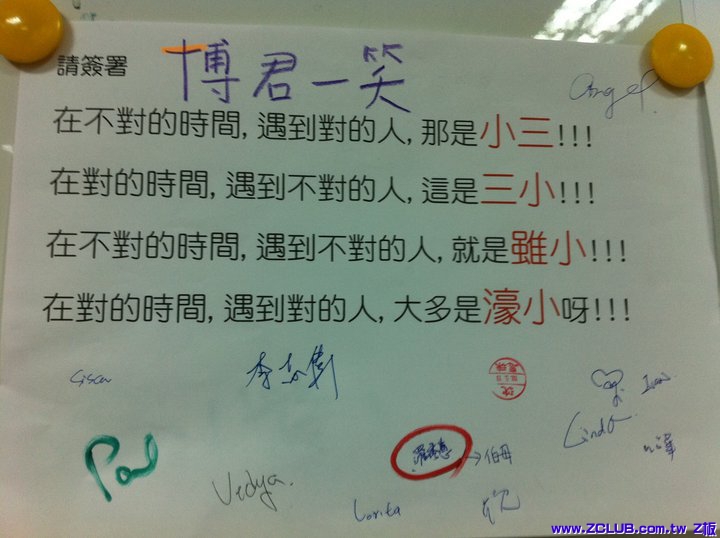 請簽署
博君一笑
Angel
在不對的時間,遇到對的人,那是小三!!!
在對的時間,遇到不對的人,這是三小!!!
在不對的時間,遇到不對的人,就是雖小!!!
在對的時間,遇到對的人,大多是濠小呀!!!
Paul
Vedya.
Lorita
Linda
→伯母
www.ZCLUB.com.tw Z板